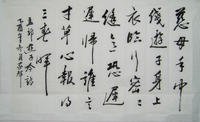 慈母手中
綫遊子身上
衣臨行密密
縫意恐遲
遲歸誰言
寸草心報得
三春暉
孟郊遊子吟